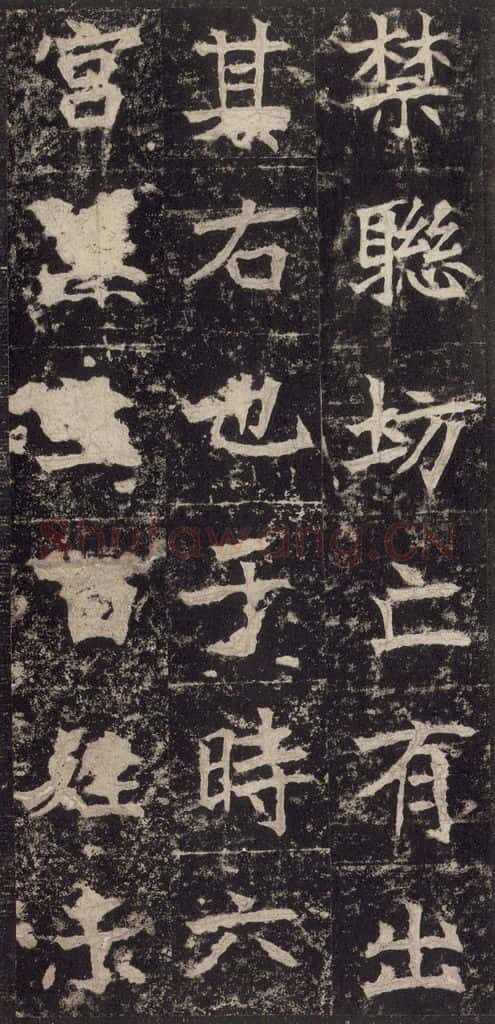 禁聯坊亡有出
其右也于時六
宮百姓未
Shufawang.CN